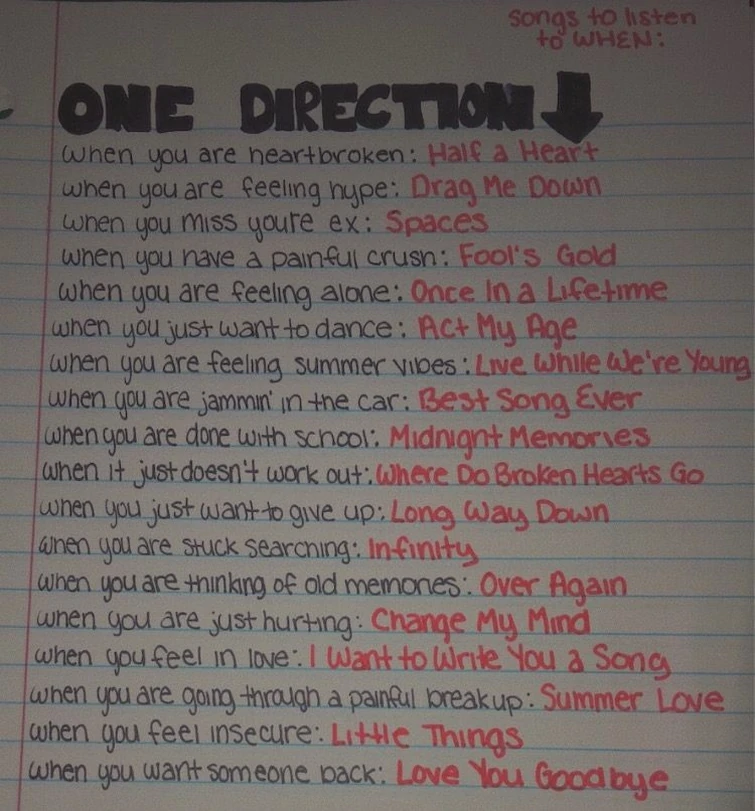 songs to listen
to WHEN:
ONE DIRECTION
when you are heartbroken: Half a Heart
when you are feeling hype: Drag Me Down
when you miss youre ex: Spaces
when you have a painful crush: Fool's Gold
when you are feeling alone: Once In a Lifetime
when you just want to dance: Act My Age
when you are feeling summer vibes: Live While We're Young
when you are jammin' in the car: Best Song Ever
when you are done with school: Midnight Memories
when it just doesn't work out: Where Do Broken Hearts Go
when you just want to give up: Long Way Down
when you are stuck searching: Infinity
when you are thinking of old memories: Over Again
when you are just hurting: Change My Mind
when you feel in love: I Want to Write You a Song
when you are going through a painful breakup: Summer Love
when you feel insecure: Little Things
when you want someone back: Love You Goodbye